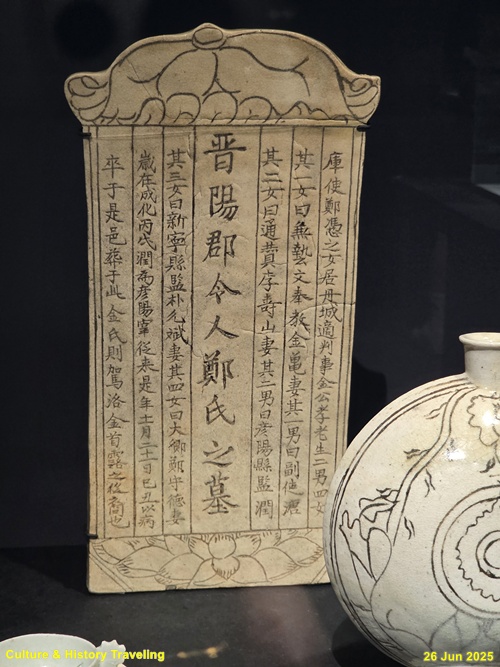 庫使鄭憑之女居丹城適判事金公孝老生二男四女
其一女曰無藝文奉教金亀妻其一男曰副使
其二女曰通賛李壽山妻其二男曰彦陽縣監潤
晋陽郡令人鄭氏之墓
其三女曰新寧縣監朴允斌妻其四女曰大卿鄭守德妻
歲在成化丙戌潤為彦陽宰從来是年十一月二十日己丑以病
卒于是邑葬于此金氏則駕洛金首露之後裔也
Culture & History Traveling
26 Jun 2025